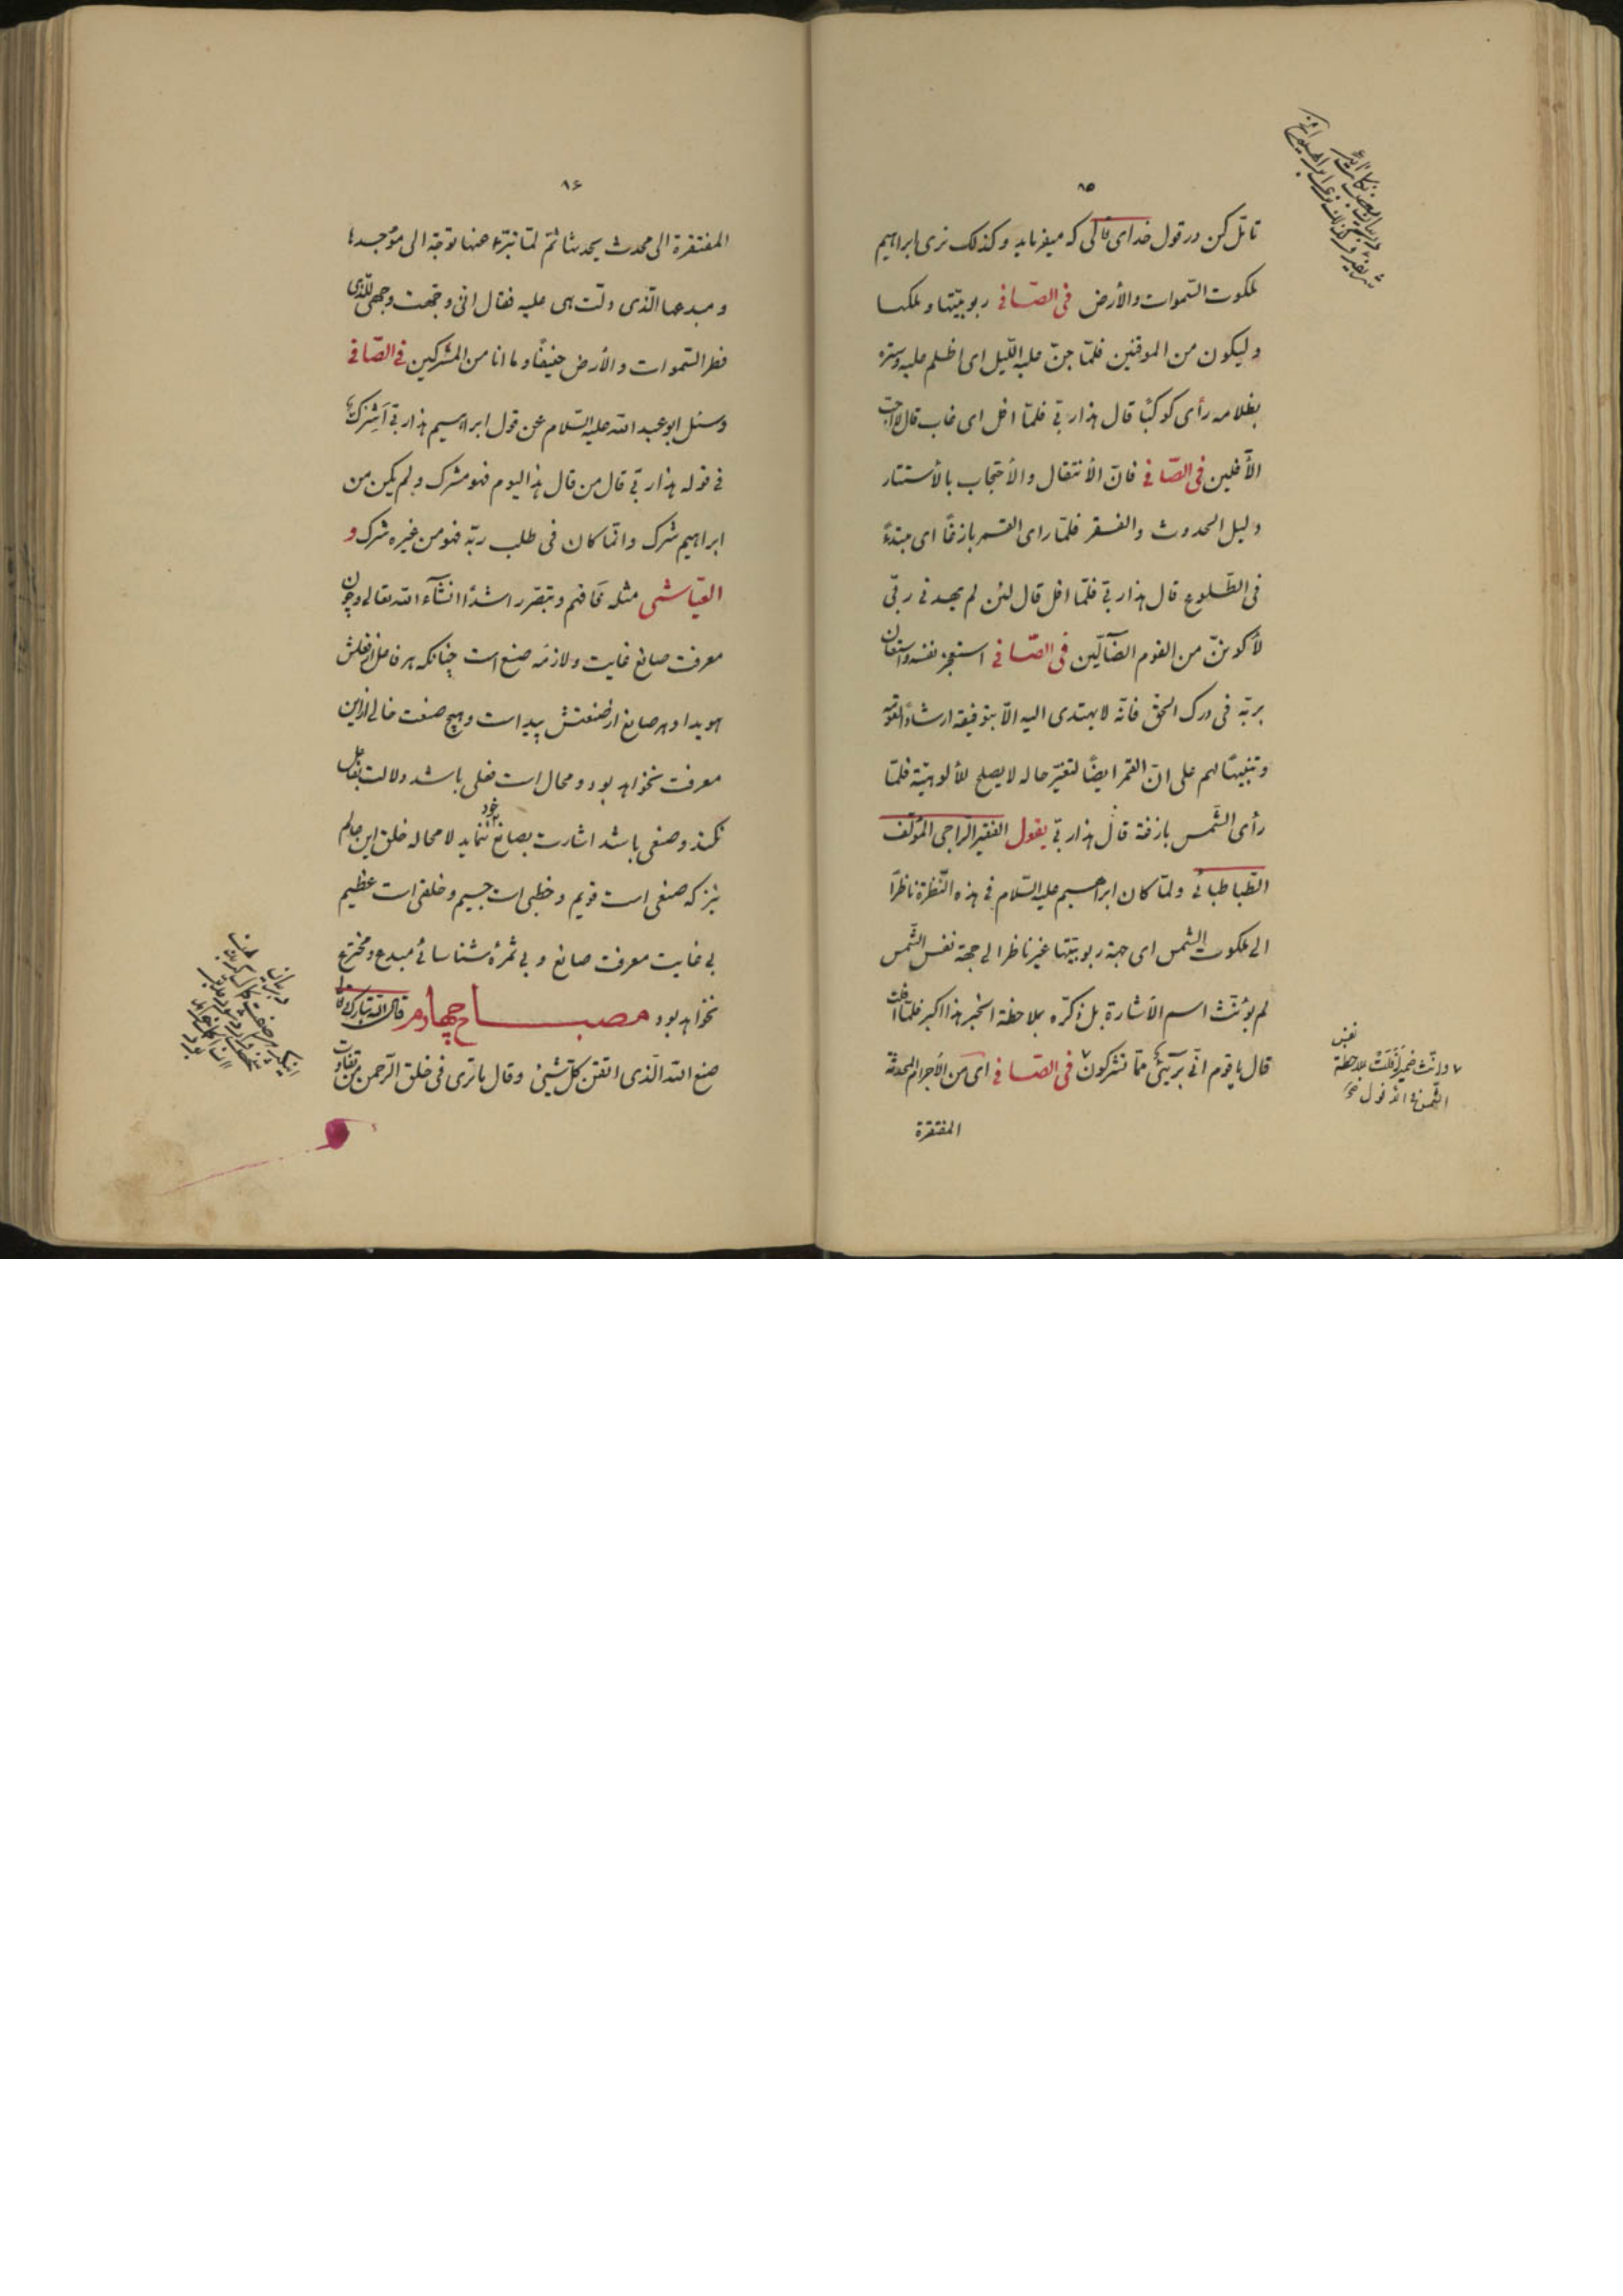 ۸۵
تأمّل کن در قول خدای تعالی که میفرماید و کذلک نری ابراهیم
ملکوت السّموات والأرض فی الصّافی ربوبیّتها و ملکها
ولیکون من الموقنین فلمّا جنّ علیه اللّیل ای اظلم علیه وستره
بظلامه رأی کوکبًا قال هذا ربّی فلمّا افل ای غاب قال لا احبّ
الآفلین فی الصّافی فانّ الأنتقال والأحتجاب بالأستتار
دلیل الحدوث والفقر فلمّا رای القمر بازغًا ای مبتدءً
فی الطّلوع قال هذا ربّی فلمّا افل قال لئن لم یهدنی ربّی
لأکوننّ من القوم الضآلّین فی الصّافی استعجز نفسه واستعان
بربّه فی درک الحقّ فانّه لا یهتدی الیه الّا بتوفیقه ارشادًا لقومه
وتنبیهًا لهم علی انّ القمر ایضًا لتغیّر حاله لا یصلح للألوهیّة فلمّا
رأی الشّمس بازغة قال هذا ربّی یقول الفقیر الراجی المؤلّف
الطّباطبائی ولمّا کان ابراهیم علیه السّلام فی هذه النّظرة ناظرًا
الی ملکوت الشمس ای جهة ربوبیّتها غیر ناظر الی جهة نفس الشّمس
لم یؤنّث اسم الأشارة بل ذکّره بملاحظة الخبر هذا اکبر فلمّا افلت
قال یا قوم انّی برئ ممّا تشرکون فی الصّافی ای من الأجرام المحدثة
المفتقرة
وانّث ضمیر افلت بملاحظة نفس
الشّمس فی الافول
۸۶
المفتقرة الی محدث یحدثها ثمّ لمّا تبرّء عنها توجّه الی موجدها
و مبدعها الّذی دلّت هی علیه فقال انّی وجّهت وجهی للّذی
فطر السّموات والأرض حنیفًا وما انا من المشرکین فی الصّافی
وسئل ابو عبد الله علیه السّلام عن قول ابراهیم هذا ربّی أشرک
فی قوله هذا ربّی قال من قال هذا الیوم فهو مشرک ولم یکن من
ابراهیم شرک وانّما کان فی طلب ربّه فهو من غیره شرک و
العیّاشی مثله فافهم وتبصّر رشدًا انشآء الله تعالی وچون
معرفت صانع غایت ولازمه صنع است چنانکه هر فاعل از فعلش
هویدا و هر صانع از صنعتش پیداست و هیچ صنعت خالی از این
معرفت نخواهد بود و محال است فعلی باشد دلالت بفاعل
نکند و صنعی باشد اشارت بصانع خود ننماید لا محاله خلق این عالم
نیز که صنعی است قویم و خطبی است جسیم و خلقی است عظیم
بی غایت معرفت صانع و بی ثمرهٔ شناسائی مبدع و مخترع
نخواهد بود مصباح چهارم قال الله تبارک وتعالی
صنع الله الّذی اتقن کلّ شیئ وقال ما تری فی خلق الرّحمن من تفاوت